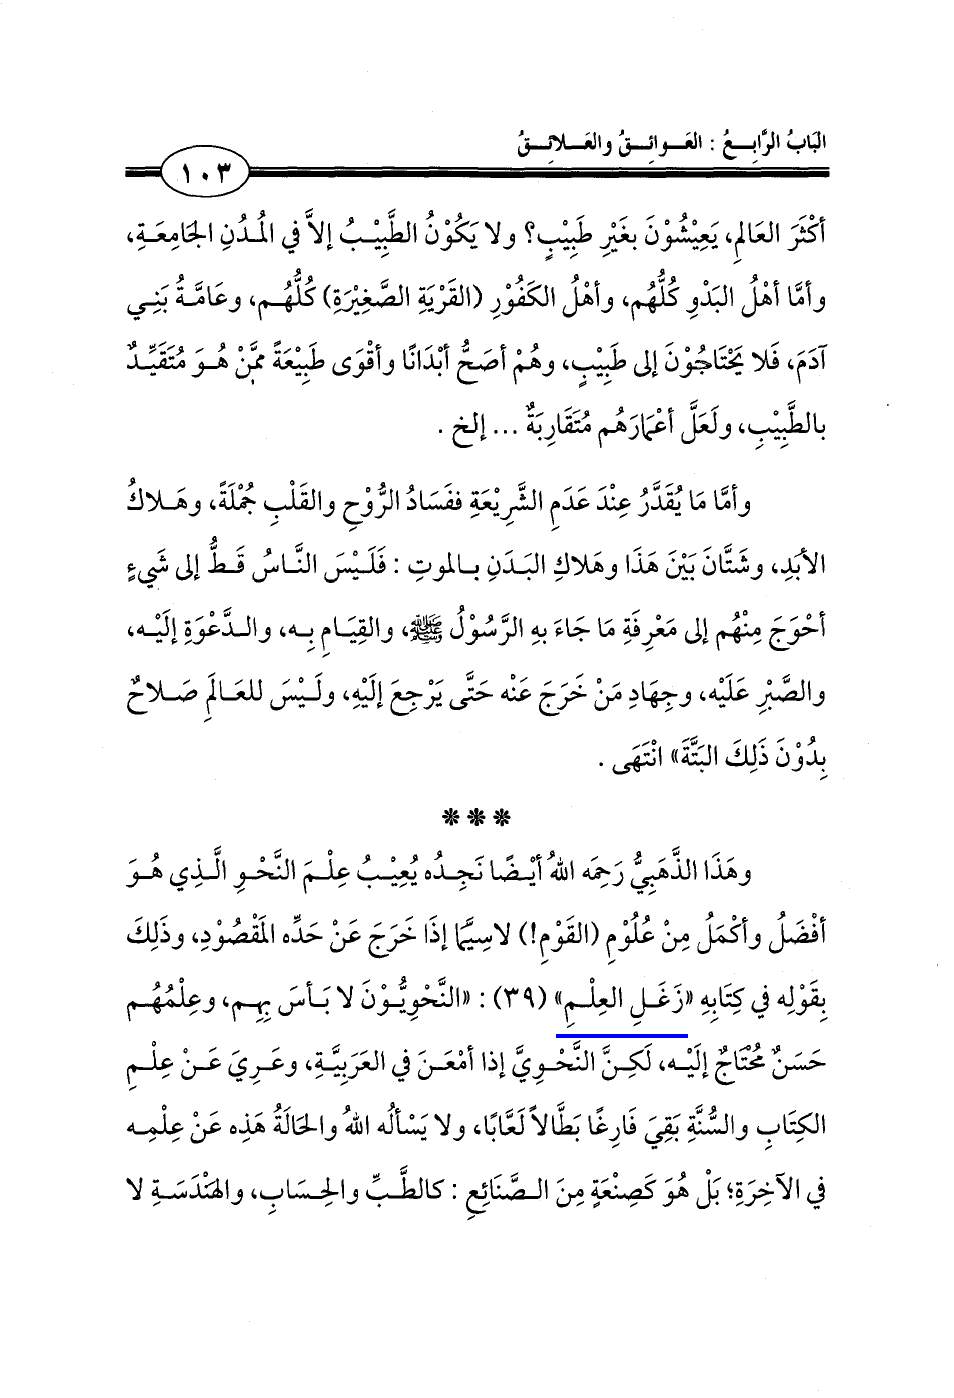 البَابُ الرَّابِعُ : العَوائِقُ والعَلائِقُ
١٠٣
أكْثَرَ العَالمِ، يَعِيْشُوْنَ بغَيْرِ طَبِيْبٍ؟ ولا يَكُوْنُ الطَّبِيْبُ إلاَّ في المُدُنِ الجَامِعَةِ،
وأمَّا أهْلُ البَدْوِ كُلُّهُم، وأهْلُ الكَفُوْرِ (القَرْيَةِ الصَّغِيْرَةِ) كُلُّهُم، وعَامَّةُ بَنِي
آدَمَ، فَلا يَحْتَاجُوْنَ إلى طَبِيْبٍ، وهُمْ أصَحُّ أبْدَانًا وأقْوَى طَبِيْعَةً ممَّنْ هُوَ مُتَقَيِّدٌ
بالطَّبِيْبِ، ولَعَلَّ أعْمارَهُم مُتَقَارِبَةٌ ... إلخ .
وأمَّا مَا يُقَدَّرُ عِنْدَ عَدَمِ الشَّرِيْعَةِ ففَسَادُ الرُّوْحِ والقَلْبِ جُمْلَةً، وهَلاكُ
الأبَدِ، وشَتَّانَ بَيْنَ هَذَا وهَلاكِ البَدَنِ بالموتِ : فَلَيْسَ النَّاسُ قَطُّ إلى شَيءٍ
أحْوَجَ مِنْهُم إلى مَعْرِفَةِ مَا جَاءَ بهِ الرَّسُوْلُ ﷺ، والقِيَامِ بِه، والدَّعْوَةِ إلَيْه،
والصَّبْرِ عَلَيْه، وجِهَادِ مَنْ خَرَجَ عَنْه حَتَّى يَرْجِعَ إلَيْهِ، ولَيْسَ للعَالَمِ صَلاحٌ
بِدُوْنَ ذَلِكَ البَتَّةَ» انْتَهَى .
***
وهَذَا الذَّهَبِيُّ رَحِمَه اللهُ أيْضًا نَجِدُه يُعِيْبُ عِلْمَ النَّحْوِ الَّذِي هُوَ
أفْضَلُ وأكْمَلُ مِنْ عُلُوْمِ (القَوْمِ!) لاسِيَّما إذَا خَرَجَ عَنْ حَدِّه المَقْصُوْدِ، وذَلِكَ
بقَوْلِه في كِتَابِهِ «زَغَلِ العِلْمِ» (٣٩) : «النَّحْوِيُّوْنَ لا بَأسَ بِهِم، وعِلْمُهُم
حَسَنٌ مُحْتَاجٌ إلَيْه، لَكِنَّ النَّحْوِيَّ إذا أمْعَنَ في العَرَبِيَّةِ، وعَرِيَ عَنْ عِلْمِ
الكِتَابِ والسُّنَّةِ بَقِيَ فَارِغًا بَطَّالاً لَعَّابًا، ولا يَسْألُه اللهُ والحَالَةُ هَذِه عَنْ عِلْمِه
في الآخِرَةِ؛ بَلْ هُوَ كَصِنْعَةٍ مِنَ الصَّنَائِعِ : كالطِّبِّ والحِسَابِ، والهَنْدَسَةِ لا